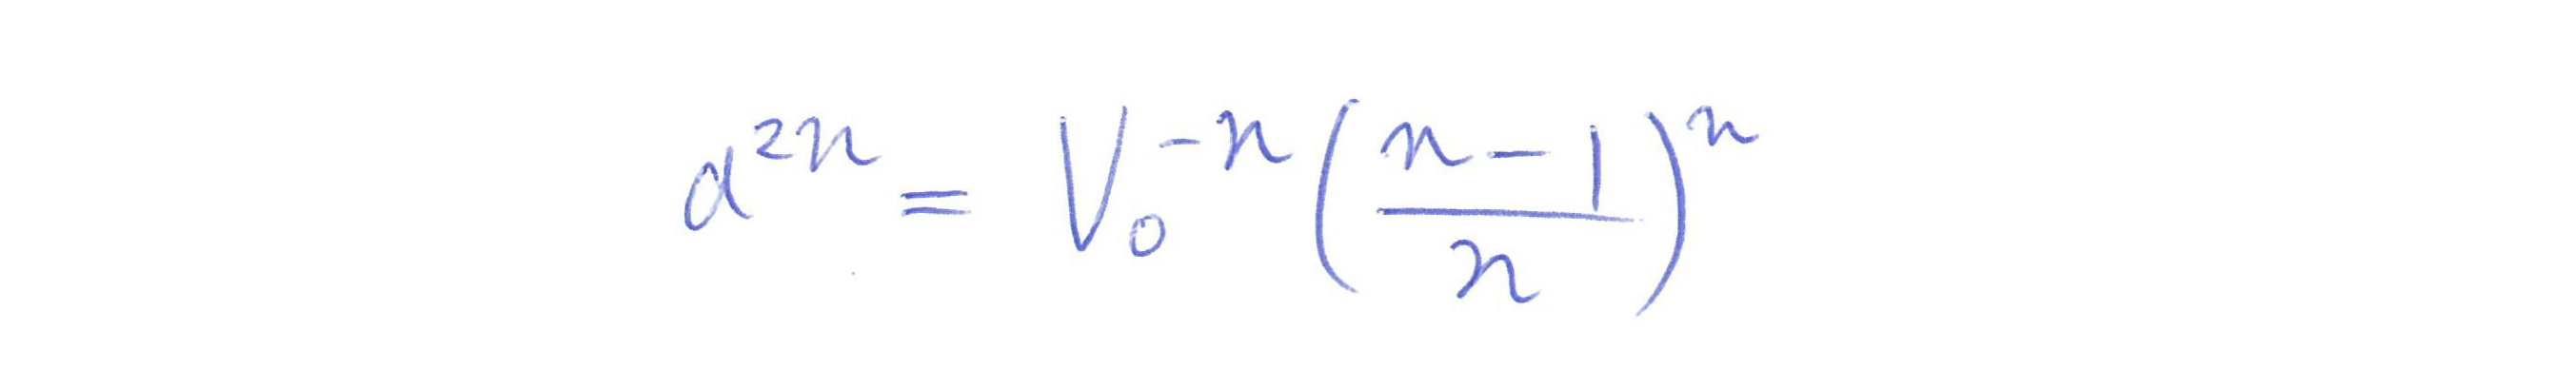 $a^{2n} = V_0^{-n} \left( \frac{n-1}{n} \right)^n$